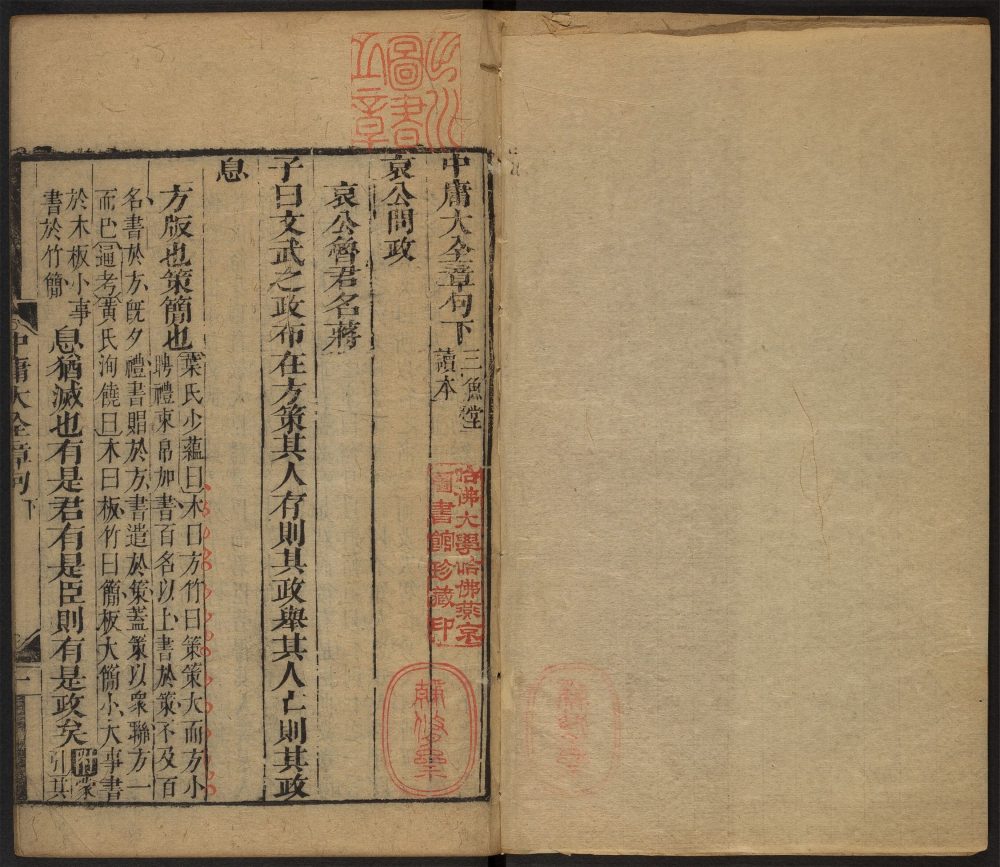 中庸大全章句下
三魚堂
讀本
哀公問政
哀公魯君名蔣
子曰文武之政布在方策其人存則其政舉其人亡則其政
息
方版也策簡也
葉氏少蘊曰木曰方竹曰策策大而方小
聘禮束帛加書百名以上書於策不及百
名書於方既夕禮書賵於方書遣於策蓋策以衆聯方一
而已通考黃氏洵饒曰木曰板竹曰簡板大簡小大事書
於木板小事
書於竹簡
息猶滅也有是君有是臣則有是政矣
附蒙
引其
中庸大全章句
下
一
圖書
章
哈佛大學哈佛燕京
圖書館珍藏印